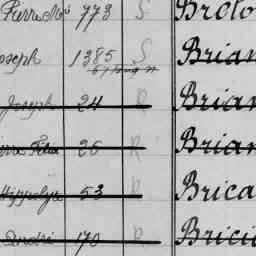 Pierre 773 S Broto
oseph 1385 S Brian
Joseph 24 R Brian
26 R Brian
Hippolyte 53 R Brica
André 170 R Brici